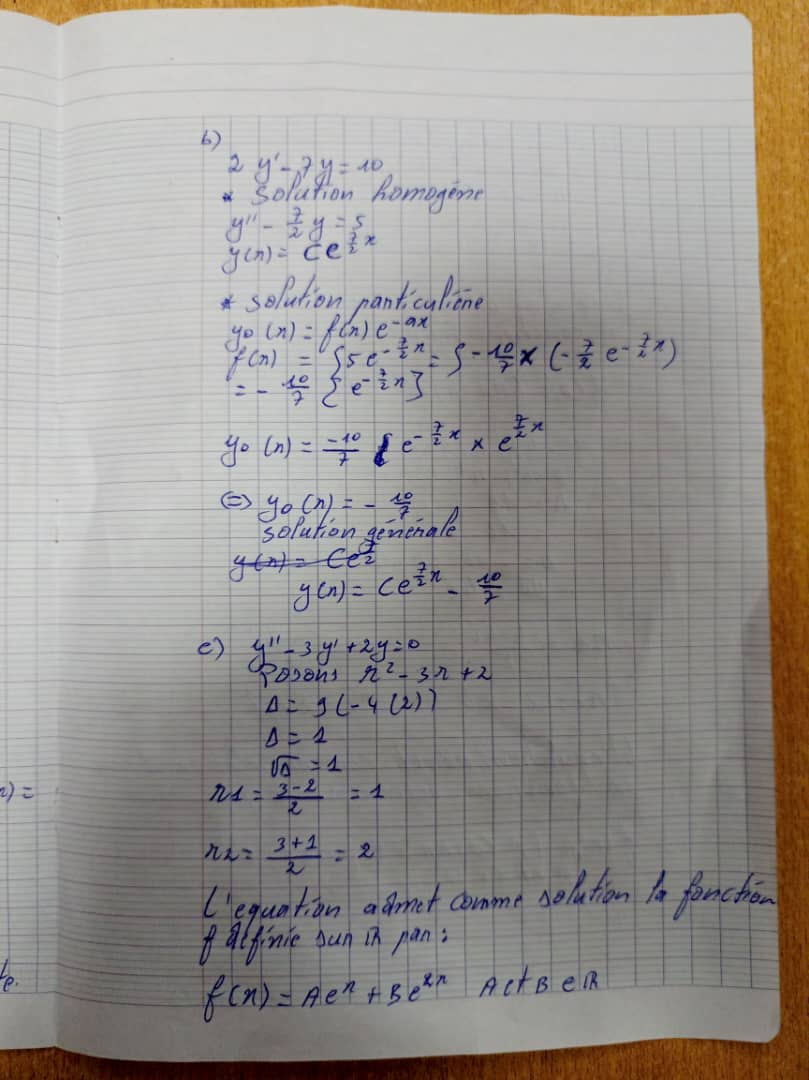 b)
2 y' - 7y = 10
* solution homogène
y'' - 7/2 y = 5
y(x) = C e^{7/2 x}
* solution particulière
y₀(x) = f(x) e^{-ax}
f(x) = ∫5 e^{-7/2 x} = ∫ -10/7 x (-7/2 e^{-7/2 x})
= - 10/7 { e^{-7/2 x} }
y₀(x) = -10/7 e^{-7/2 x} × e^{7/2 x}
(=) y₀(x) = - 10/7
solution générale
y(x) = C e^{7/2}
y(x) = C e^{7/2 x} - 10/7
c) y'' - 3y' + 2y = 0
Posons r² - 3r + 2
Δ = 9(-4(2))
Δ = 1
√Δ = 1
r1 = (3-2)/2 = 1
r2 = (3+1)/2 = 2
L'equation admet comme solution la fonction
f definie sur ℝ par :
f(x) = Ae^x + Be^{2x} A et B ∈ ℝ
x) =
te.